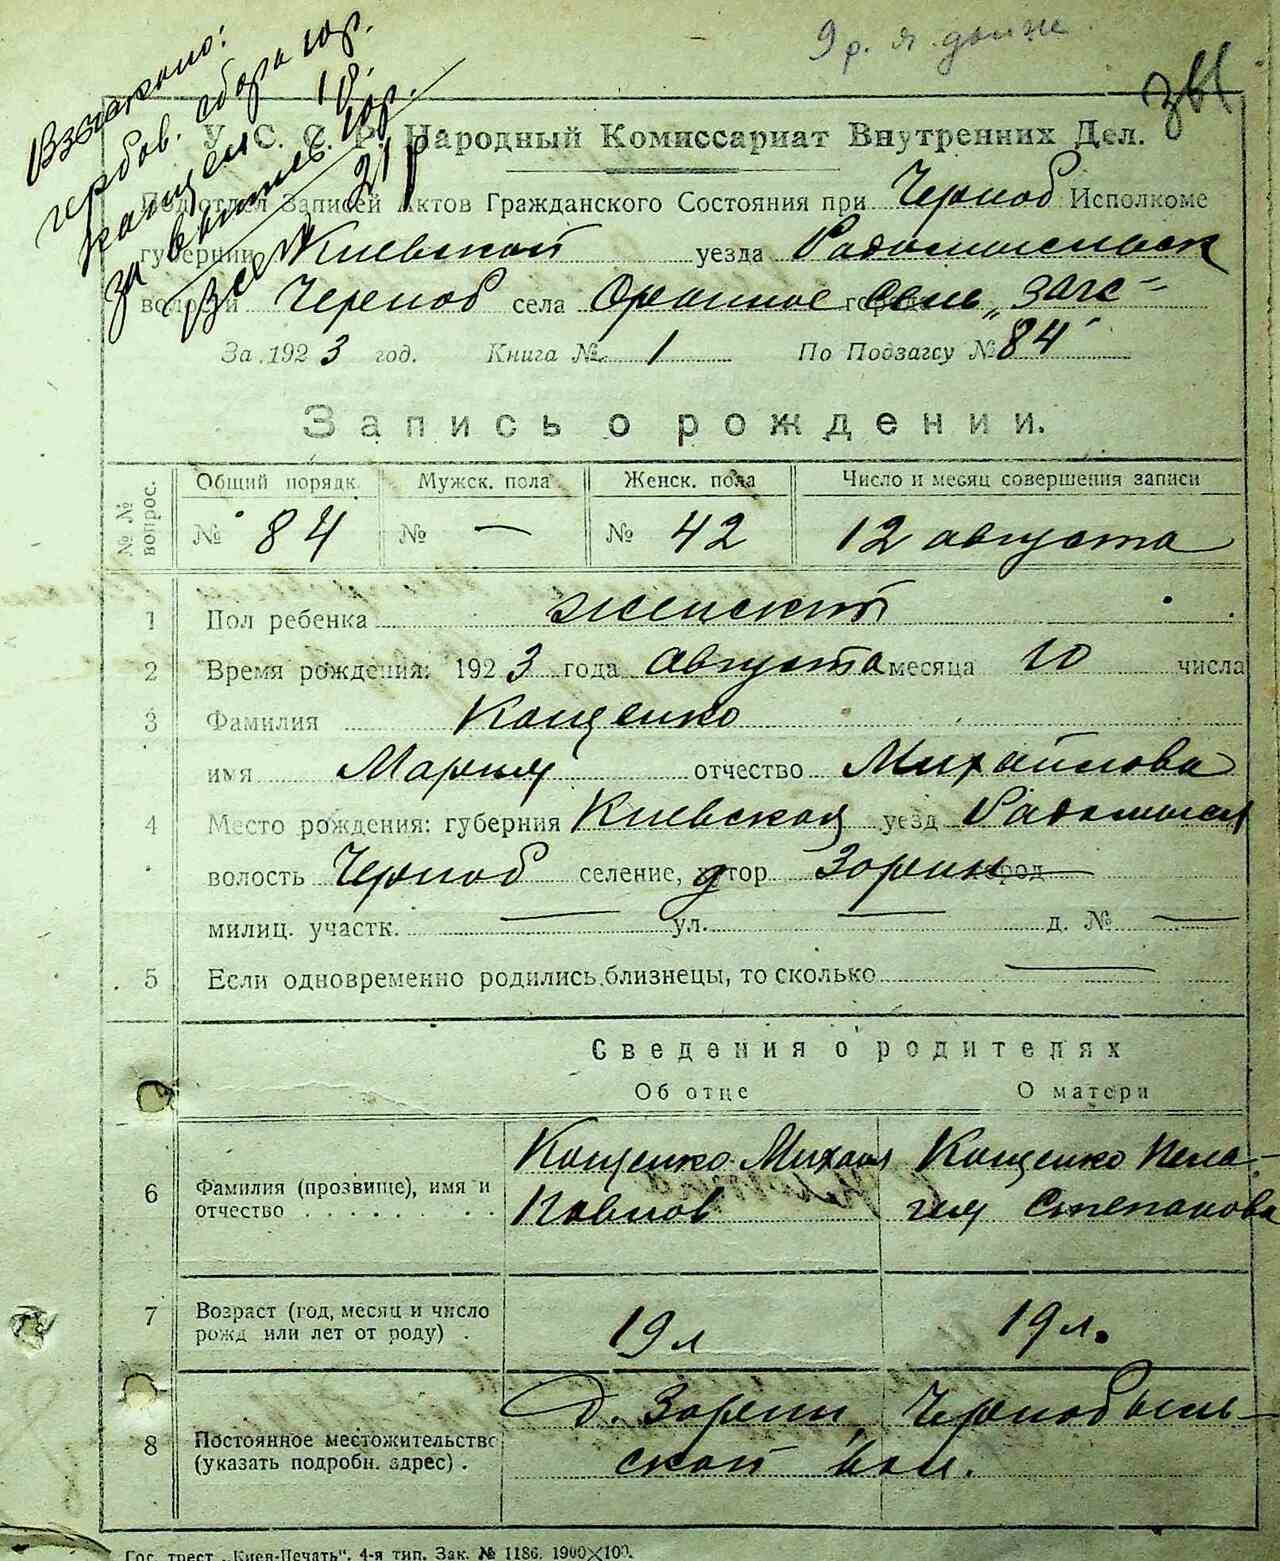 Взыскано:
гербов. сбора 10р.
канцел 10.
за бланк 1р.
Всего 21р
9 р. я
У. С. С. Р. Народный Комиссариат Внутренних Дел.
Подотдел Записей Актов Гражданского Состояния при Черноб Исполкоме
губернии Киевской уезда Радомысльск
волости Черноб села Оранное города сель „загс"
За 1923 год. Книга № 1 По Подзагсу № 84
Запись о рождении.
№ № вопрос. Общий порядк. Мужск. пола Женск. пола Число и месяц совершения записи
№ 84 № — № 42 12 августа
1 Пол ребенка женский
2 Время рождения: 1923 года августа месяца 10 числа
3 Фамилия Кощенко
имя Мария отчество Михайлова
4 Место рождения: губерния Киевская уезд Радомысл
волость Черноб селение, хутор д Зорин город —
милиц. участк. — ул. — д. № —
5 Если одновременно родились близнецы, то сколько —
Сведения о родителях
Об отце О матери
6 Фамилия (прозвище), имя и отчество . . . . . . . .
Кощенко Михаил
Павлов
Кощенко Пела-
гия Степанова
7 Возраст (год, месяц и число рожд или лет от роду) .
19 л
19 л.
8 Постоянное местожительство (указать подробн. адрес) .
д. Зорин, Чернобыль-
ской вол.
Гос. трест „Киев-Печать". 4-я тип. Зак. № 1186. 1900×100.